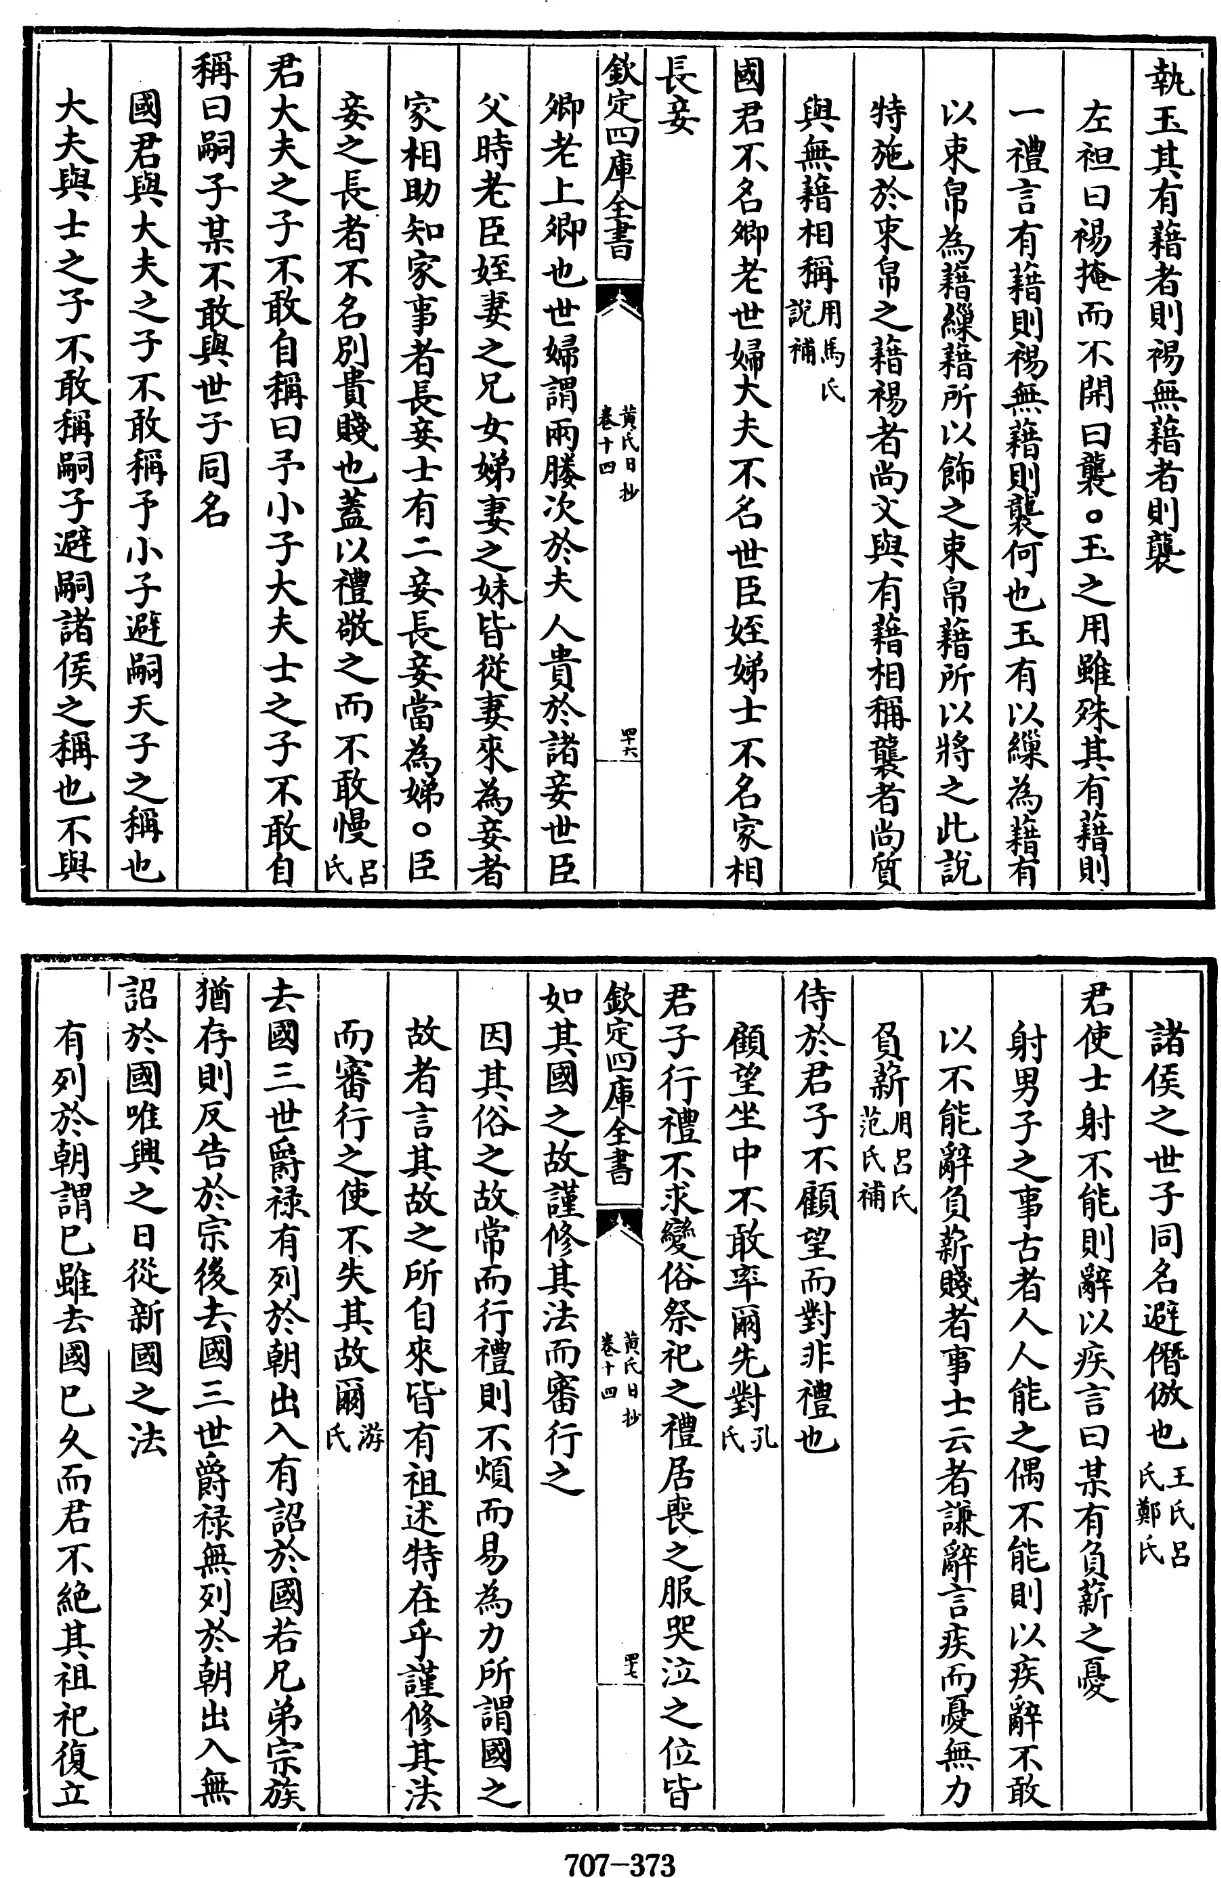 執玉其有藉者則裼無藉者則襲
左袒曰裼掩而不開曰襲○玉之用雖殊其有藉則
一禮言有藉則裼無藉則襲何也玉有以繅為藉有
以束帛為藉繅藉所以飾之束帛藉所以將之此說
特施於束帛之藉裼者尚文與有藉相稱襲者尚質
與無藉相稱用馬氏說補
國君不名卿老世婦大夫不名世臣姪娣士不名家相
長妾
欽定四庫全書 黃氏日抄卷十四 四十六
卿老上卿也世婦謂兩媵次於夫人貴於諸妾世臣
父時老臣姪妻之兄女娣妻之妹皆從妻來為妾者
家相助知家事者長妾士有二妾長妾當為娣○臣
妾之長者不名別貴賤也蓋以禮敬之而不敢慢呂氏
君大夫之子不敢自稱曰予小子大夫士之子不敢自
稱曰嗣子某不敢與世子同名
國君與大夫之子不敢稱予小子避嗣天子之稱也
大夫與士之子不敢稱嗣子避嗣諸侯之稱也不與
諸侯之世子同名避僭倣也王氏呂氏鄭氏
君使士射不能則辭以疾言曰某有負薪之憂
射男子之事古者人人能之偶不能則以疾辭不敢
以不能辭負薪賤者事士云者謙辭言疾而憂無力
負薪用呂氏范氏補
侍於君子不顧望而對非禮也
顧望坐中不敢率爾先對孔氏
君子行禮不求變俗祭祀之禮居喪之服哭泣之位皆
欽定四庫全書 黃氏日抄卷十四 四十七
如其國之故謹修其法而審行之
因其俗之故常而行禮則不煩而易為力所謂國之
故者言其故之所自來皆有祖述特在乎謹修其法
而審行之使不失其故爾游氏
去國三世爵祿有列於朝出入有詔於國若兄弟宗族
猶存則反告於宗後去國三世爵祿無列於朝出入無
詔於國唯興之日從新國之法
有列於朝謂已雖去國已久而君不絕其祖祀復立
707-373